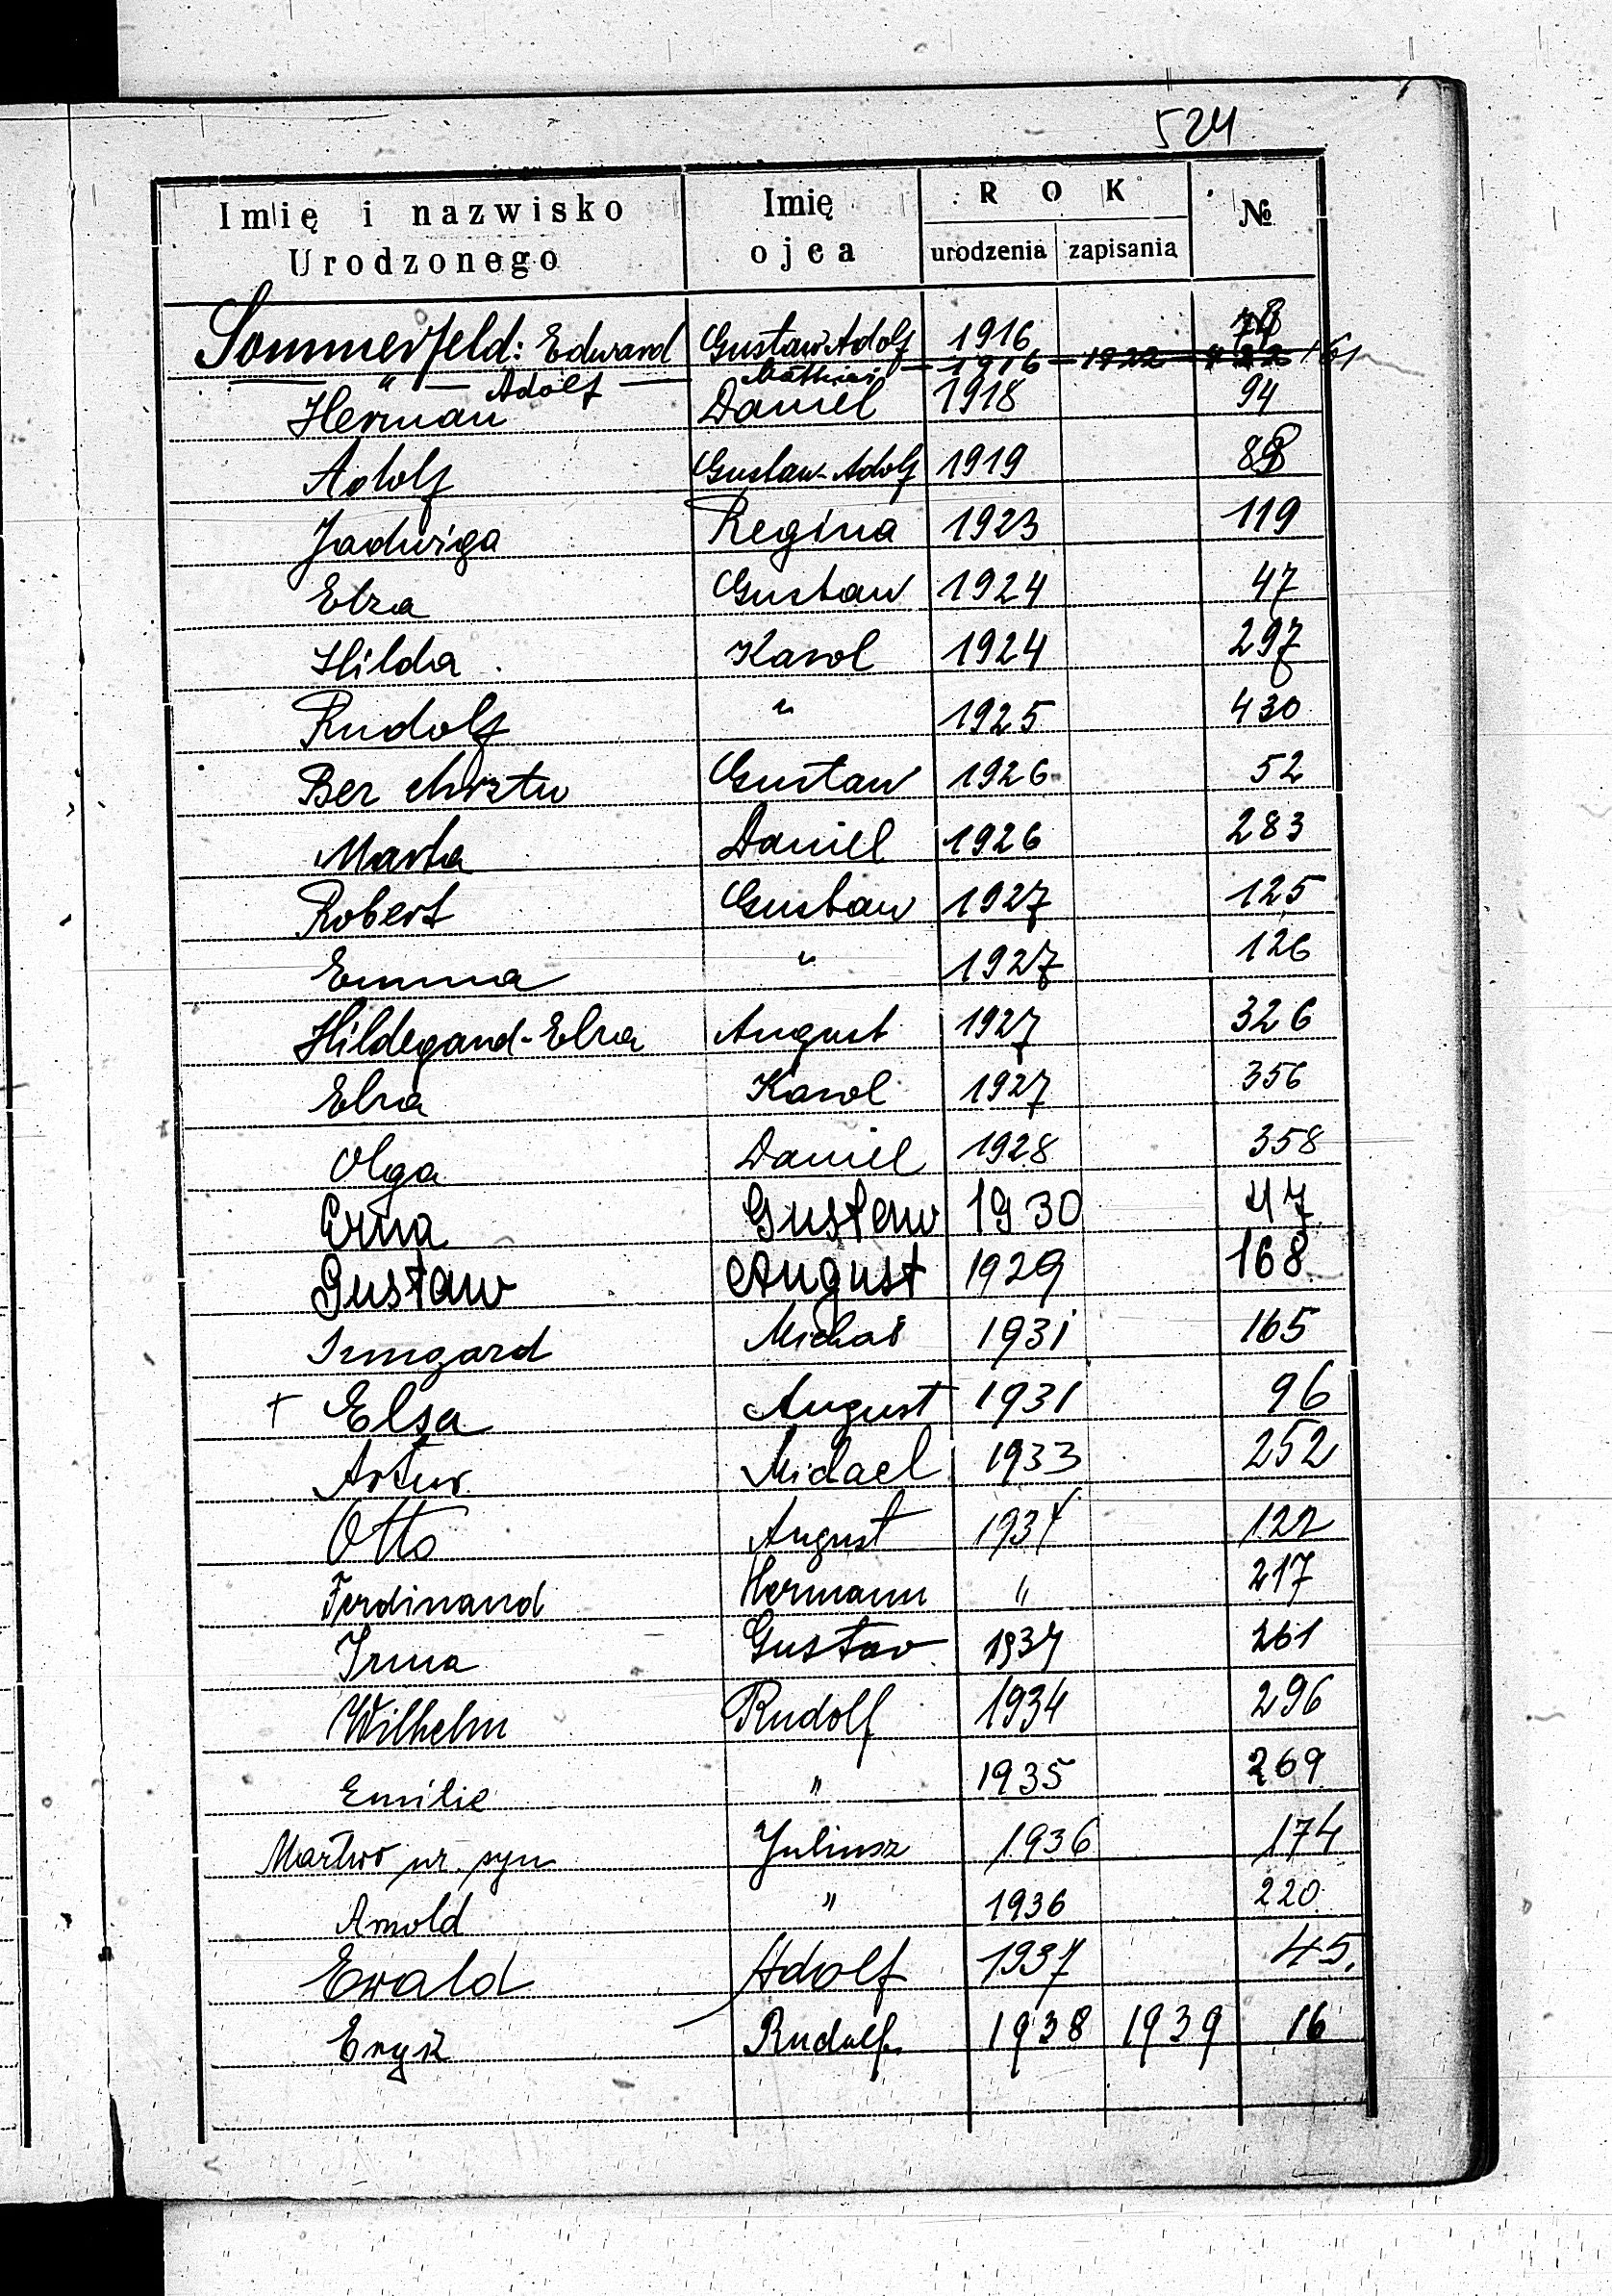 524
Imię i nazwisko Urodzonego | Imię ojca | ROK urodzenia | zapisania | №
Sommerfeld: Edward | Gustaw Adolf | 1916 | |
" Adolf | Mathias | 1916 | 1922 | 161
Herman | Daniel | 1918 | | 94
Adolf | Gustaw-Adolf | 1919 | |
Jadwiga | Regina | 1923 | | 119
Elza | Gustaw | 1924 | | 47
Hilda | Karol | 1924 | | 297
Rudolf | " | 1925 | | 430
Bez chrztu | Gustaw | 1926 | | 52
Marta | Daniel | 1926 | | 283
Robert | Gustaw | 1927 | | 125
Emma | " | 1927 | | 126
Hildegard-Elza | August | 1927 | | 326
Elza | Karol | 1927 | | 356
Olga | Daniel | 1928 | | 358
Erna | Gustaw | 1930 | | 47
Gustaw | August | 1929 | | 168
Irmgard | Michał | 1931 | | 165
+ Elsa | August | 1931 | | 96
Artur | Michael | 1933 | | 252
Otto | August | 1934 | | 122
Ferdinand | Hermann | " | | 217
Irma | Gustav | 1934 | | 261
Wilhelm | Rudolf | 1934 | | 296
Emilie | " | 1935 | | 269
Martwo ur. syn | Juliusz | 1936 | | 174
Arnold | " | 1936 | | 220
Ewald | Adolf | 1937 | | 45.
Eryk | Rudolf | 1938 | 1939 | 16